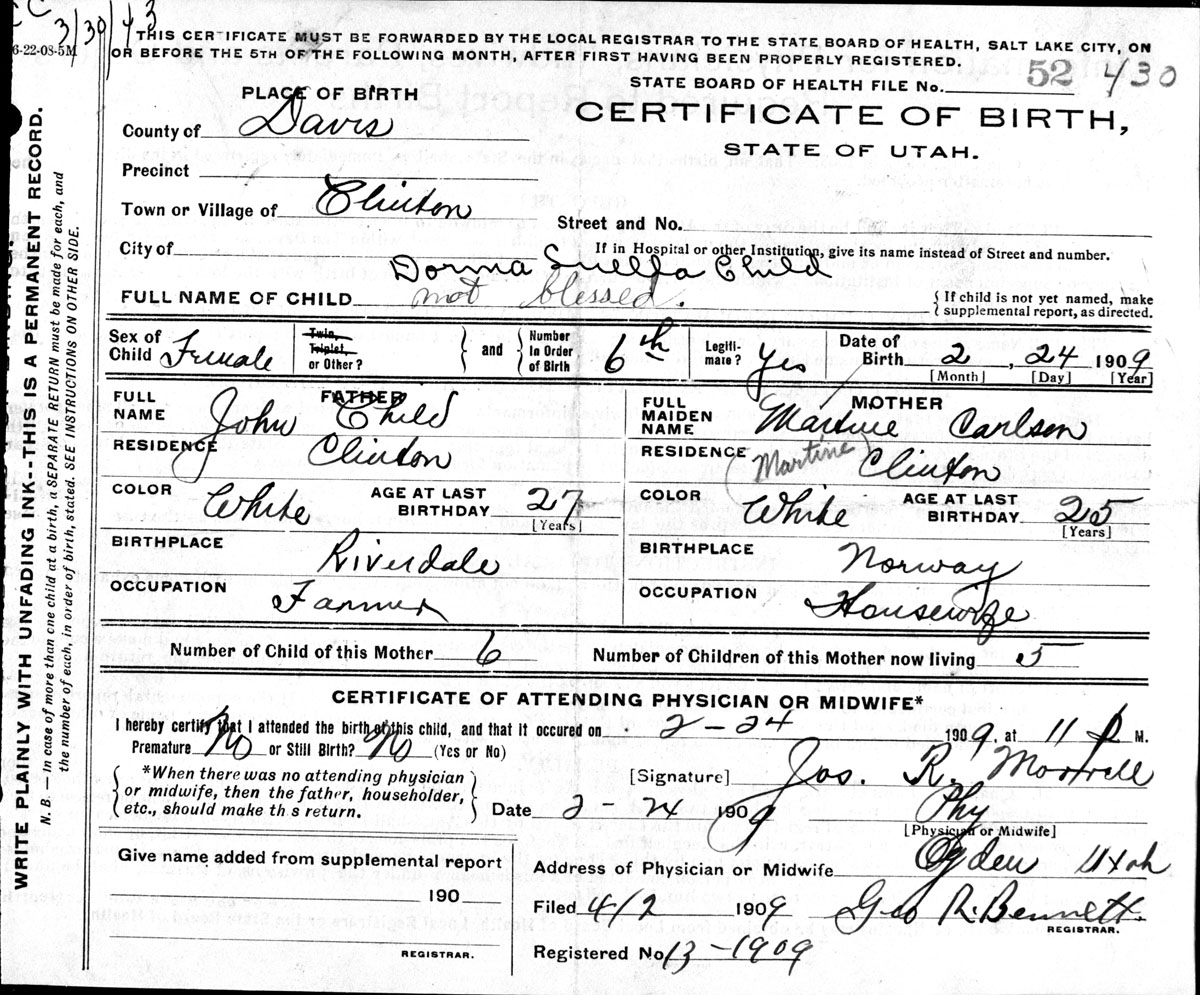 3/30/43
6-22-08-5M
THIS CERTIFICATE MUST BE FORWARDED BY THE LOCAL REGISTRAR TO THE STATE BOARD OF HEALTH, SALT LAKE CITY, ON
OR BEFORE THE 5TH OF THE FOLLOWING MONTH, AFTER FIRST HAVING BEEN PROPERLY REGISTERED.
STATE BOARD OF HEALTH FILE No. 52 430
PLACE OF BIRTH
CERTIFICATE OF BIRTH,
STATE OF UTAH.
County of Davis
Precinct
Town or Village of Clinton
Street and No.
City of
If in Hospital or other Institution, give its name instead of Street and number.
Dorma Luella Child
FULL NAME OF CHILD not blessed.
{ If child is not yet named, make
supplemental report, as directed.
Sex of Child Female
Twin, Triplet, or Other?
and
Number in Order of Birth 6th
Legiti-mate? Yes
Date of Birth 2, 24 1909
[Month] [Day] [Year]
FATHER
FULL NAME John Child
RESIDENCE Clinton
COLOR White AGE AT LAST BIRTHDAY 27
[Years]
BIRTHPLACE Riverdale
OCCUPATION Farmer
MOTHER
FULL MAIDEN NAME Martine Carlson
RESIDENCE Martine Clinton
COLOR White AGE AT LAST BIRTHDAY 25
[Years]
BIRTHPLACE Norway
OCCUPATION Housewife
Number of Child of this Mother 6 Number of Children of this Mother now living 5
CERTIFICATE OF ATTENDING PHYSICIAN OR MIDWIFE*
I hereby certify that I attended the birth of this child, and that it occured on 2-24 1909, at 11 P M.
Premature No or Still Birth? No (Yes or No)
*When there was no attending physician
or midwife, then the father, householder,
etc., should make th s return.
[Signature] Jos. R.
Date 2-24 1909 Phy
[Physician or Midwife]
Give name added from supplemental report
190
REGISTRAR.
Address of Physician or Midwife Ogden Utah
Filed 4/2 1909 Geo R. Bennett.
REGISTRAR.
Registered No 13-1909
WRITE PLAINLY WITH UNFADING INK--THIS IS A PERMANENT RECORD.
N. B. — In case of more than one child at a birth, a SEPARATE RETURN must be made for each, and
the number of each, in order of birth, stated. SEE INSTRUCTIONS ON OTHER SIDE.